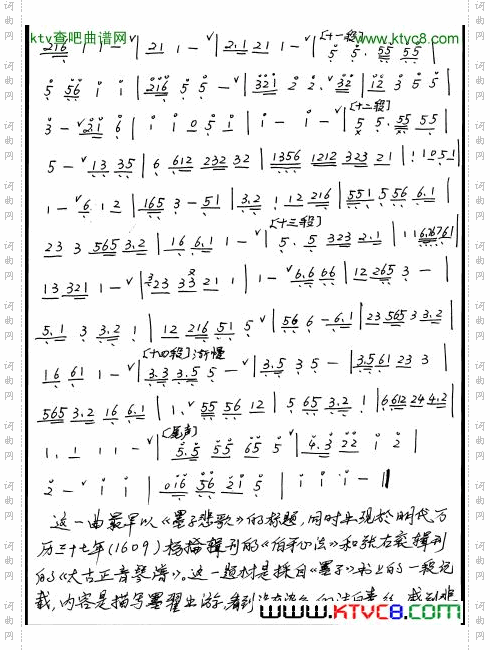 ktv查吧曲谱网 www.ktvc8.com
216 1 1 - ˅ | 21 1 - ˅ | 2.1 21 1 - ˅ | [十一段] 5 5. 55 55 |
5 56 i i | 216 5 5 - ˅ | 321 2 2. ˅32 | 12 3 5 5 |
3 - ˅2.1 6 | i i 0 5 1 | i - i - ˅ | [十二段] 5 5. 55 55 |
5 - ˅13 35 | 6 612 232 32 | 1356 1212 323 21 | 1 1 0 5 1 |
1 - ˅6. 1 2 | 165 3 - 51 | 3.2 1 12 216 | 551 5 56 6.1 |
23 3 565 3.2 | 16 6.1 1 - ˅ | [十三段] 5. 5 323 2.1 | 1 1 6.7671 |
13 321 1 - ˅ | 23 33 21 1 | 1 - ˅6.6 66 | 12 265 3 - |
5.1 3 3.2 1 | 12 216 51 5 ˅ | 56 6 - 6.1 | 23 565 3 3.2 |
16 61 1 - ˅ | [十四段]渐慢 3.3 3.5 5 - ˅ | 3.5 3 5 - | 3.561 23 3 |
565 3.2 16 6.1 | 1. 55 56 12 | 5 65 3.2 1 | 6612 24 4.2 |
1. 1 1 1 - ˅ | [尾声] 5.5 55 65 5 ˅ | 4.3 22 i 2 |
2 - ˅ i i | 016 56 21 5 | i i i - ‖
这一曲最早以《墨子悲歌》的标题，同时出现於明代万
历三十七年(1609)杨抡辑刊的《伯牙心法》和张右衮辑刊
的《太古正音琴谱》。这一题材是採自《墨子》书上的一段记
载，内容是描写墨翟出游，看到
www.KTVC8.com
词曲网
词曲网
词曲网
词曲网
词曲网
词曲网
词曲网
词曲网
词曲网
词曲网